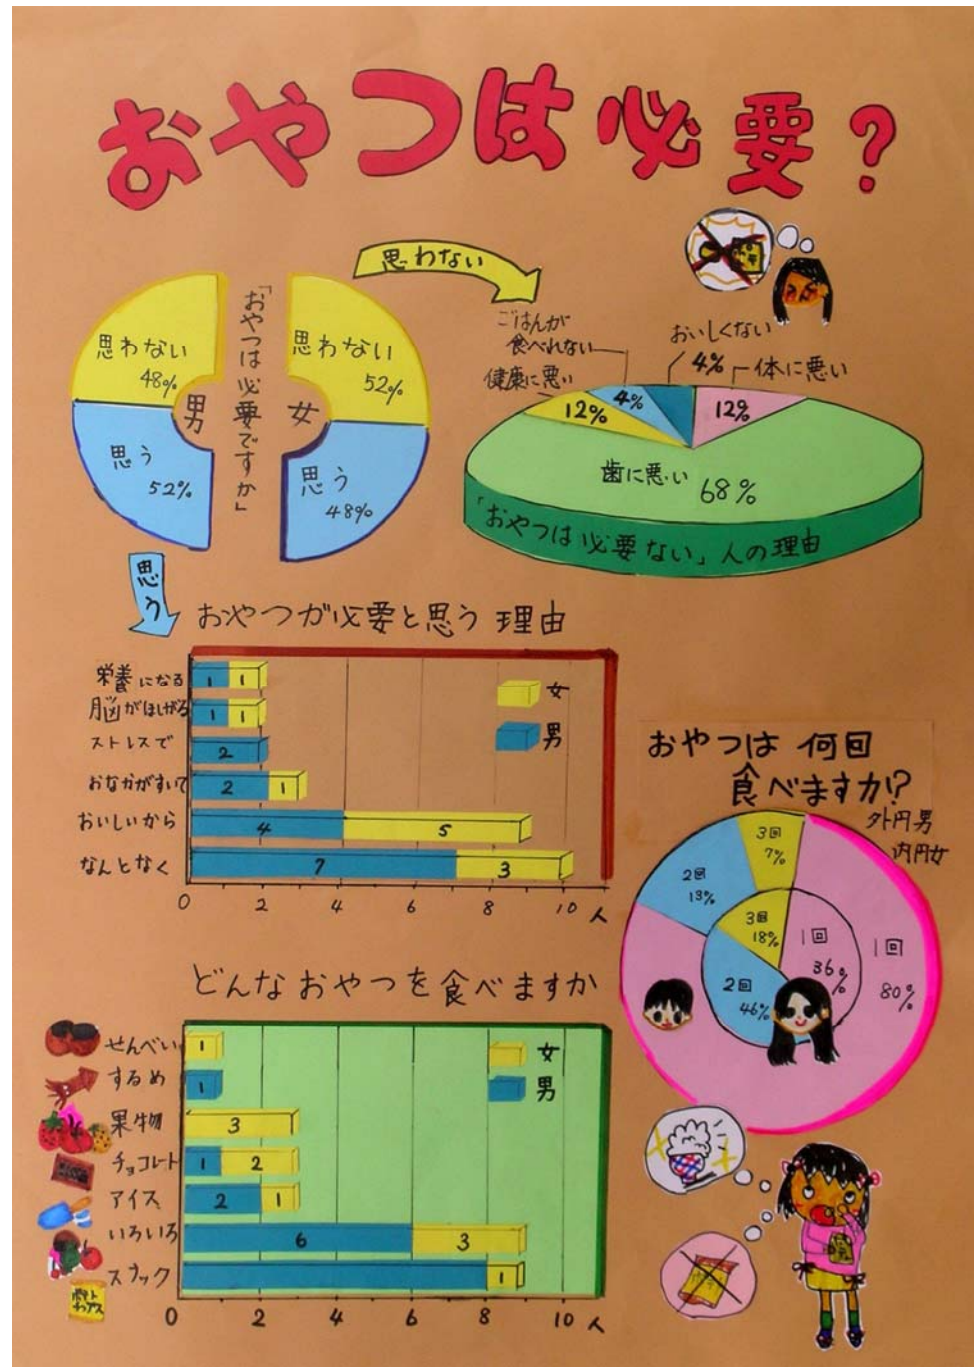 おやつは必要?
思わない
「おやつは必要ですか」
男
思わない
48%
思う
52%
女
思わない
52%
思う
48%
ごはんが
食べれない
健康に悪い
おいしくない
4%
体に悪い
12%
4%
12%
歯に悪い 68%
「おやつは必要ない」人の理由
思う
おやつが必要と思う理由
栄養になる 1 1
脳がほしがる 1 1
ストレスで 2
おなかがすいて 2 1
おいしいから 4 5
なんとなく 7 3
女
男
0 2 4 6 8 10 人
おやつは何回
食べますか!?
外円男
内円女
3回
7%
2回
13%
1回
80%
3回
18%
1回
36%
2回
46%
どんなおやつを食べますか
せんべい 1
するめ 1
果物 3
チョコレート 1 2
アイス 2 1
いろいろ 6 3
スナック 1
女
男
0 2 4 6 8 10 人
ポテト
チップス